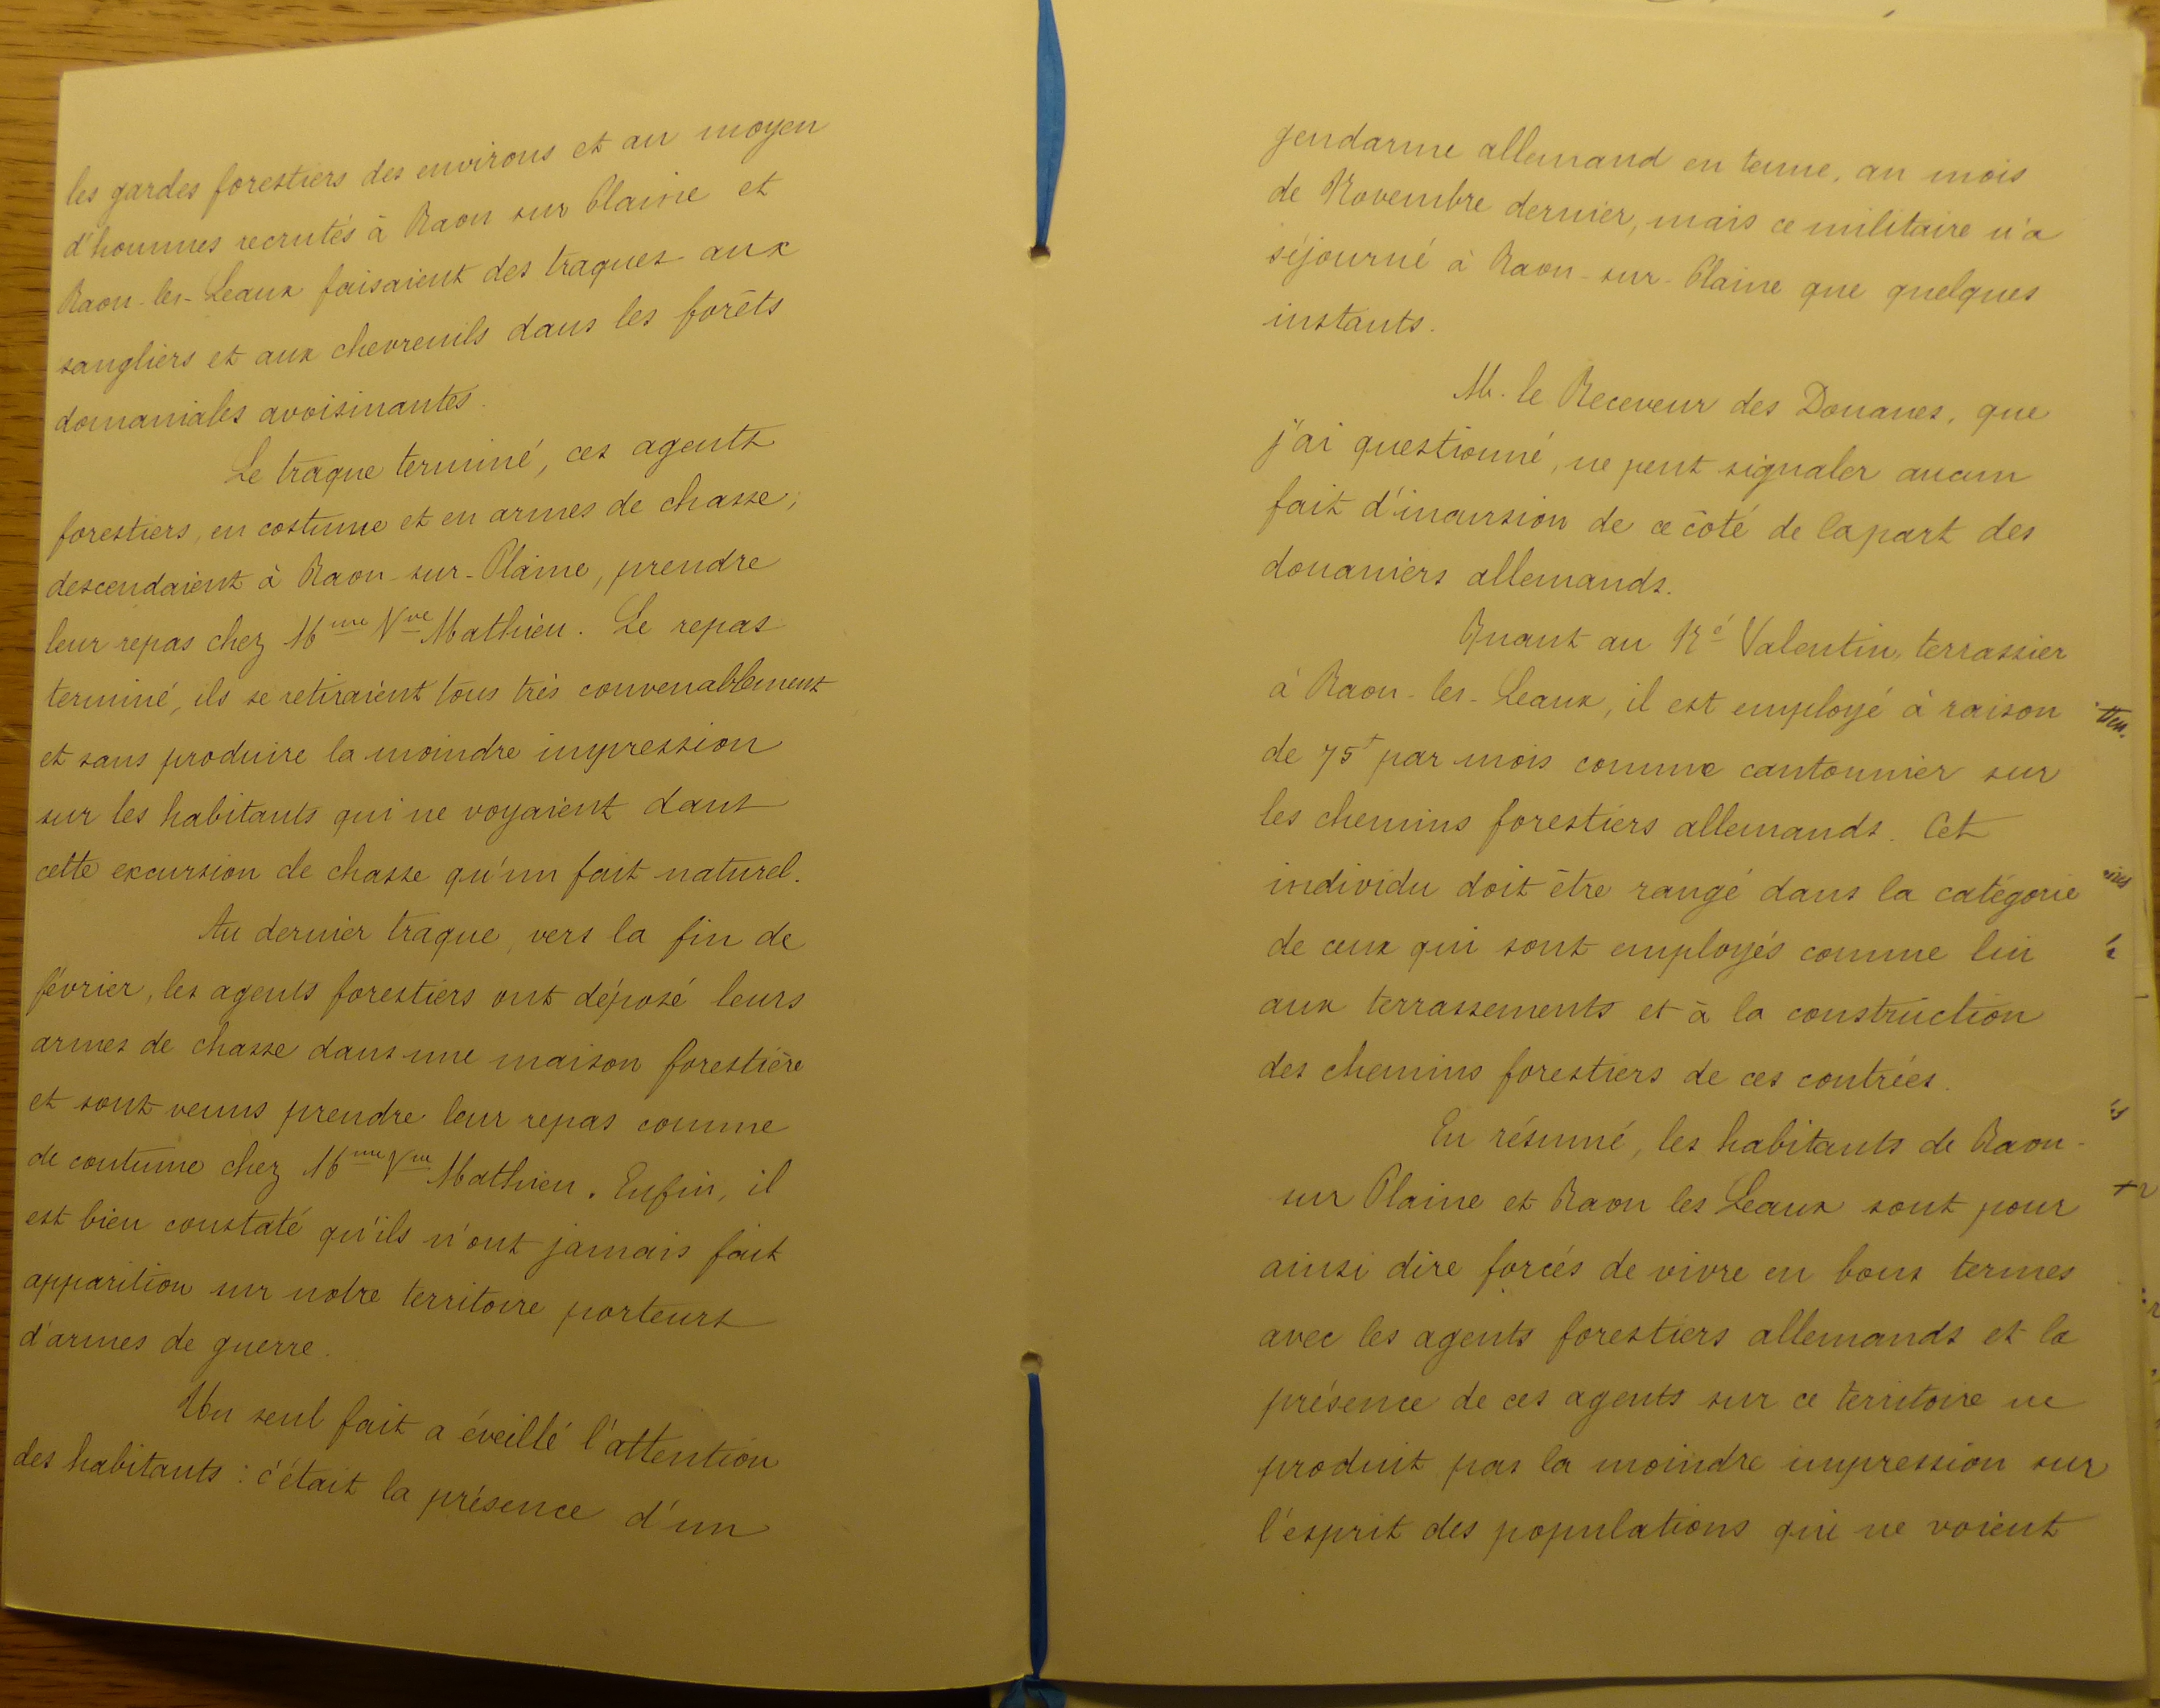 les gardes forestiers des environs et au moyen
d'hommes recrutés à Raon sur Plaine et
Raon-les-Leaux faisaient des traques aux
sangliers et aux chevreuils dans les forêts
domaniales avoisinantes.
Le traque terminé, ces agents
forestiers, en costume et en armes de chasse,
descendaient à Raon-sur-Plaine, prendre
leur repas chez Mme Vve Mathieu. Le repas
terminé, ils se retiraient tous très convenablement
et sans produire la moindre impression
sur les habitants qui ne voyaient dans
cette excursion de chasse qu'un fait naturel.
Au dernier traque, vers la fin de
février, les agents forestiers ont déposé leurs
armes de chasse dans une maison forestière
et sont venus prendre leur repas comme
de coutume chez Mme Vve Mathieu. Enfin, il
est bien constaté qu'ils n'ont jamais fait
apparition sur notre territoire porteurs
d'armes de guerre.
Un seul fait a éveillé l'attention
des habitants : c'était la présence d'un
gendarme allemand en tenue, au mois
de Novembre dernier, mais ce militaire n'a
séjourné à Raon-sur-Plaine que quelques
instants.
M. le Receveur des Douanes, que
j'ai questionné, ne peut signaler aucun
fait d'incursion de ce côté de la part des
douaniers allemands.
Quant au Né Valentin, terrassier
à Raon-les-Leaux, il est employé à raison
de 75f par mois comme cantonnier sur
les chemins forestiers allemands. Cet
individu doit être rangé dans la catégorie
de ceux qui sont employés comme lui
aux terrassements et à la construction
des chemins forestiers de ces contrées.
En résumé, les habitants de Raon-
sur Plaine et Raon les Leaux sont pour
ainsi dire forcés de vivre en bons termes
avec les agents forestiers allemands et la
présence de ces agents sur ce territoire ne
produit pas la moindre impression sur
l'esprit des populations qui ne voient